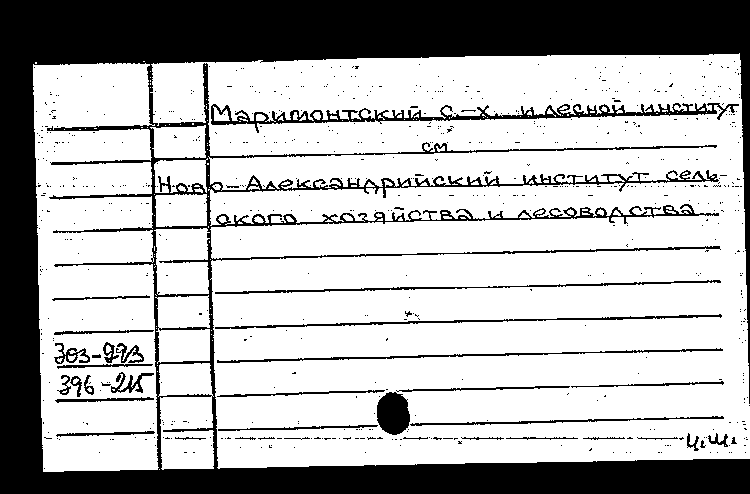 Маримонтский с.-х. и лесной институт
см
Ново-Александрийский институт сель-
ского хозяйства и лесоводства
396-215